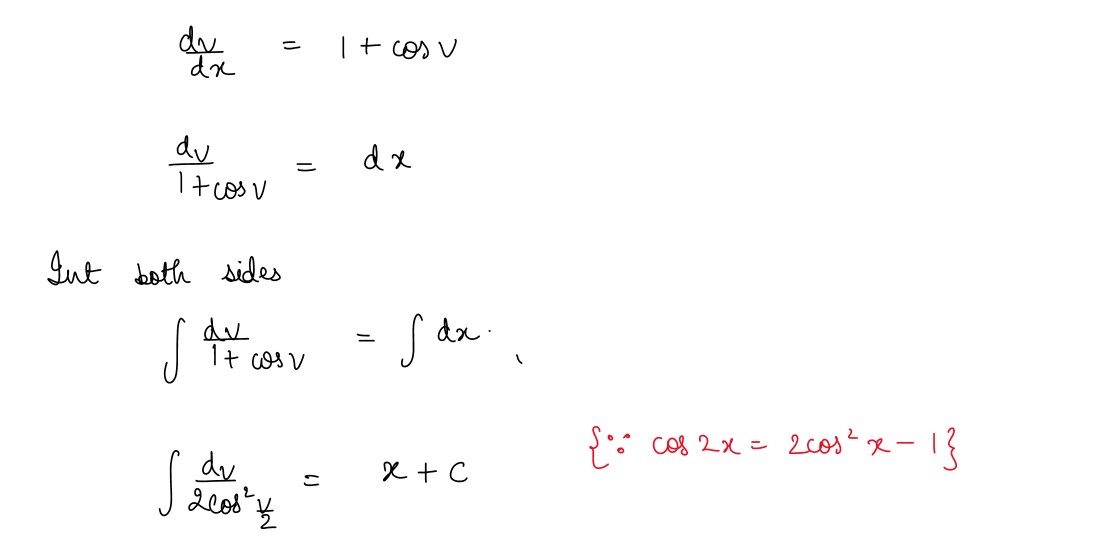 dv/dx = 1 + cos v
dv/(1+cos v) = dx
Int both sides
∫ dv/(1+ cos v) = ∫ dx.
∫ dv/(2cos² v/2) = x + c {∵ cos 2x = 2cos² x − 1}